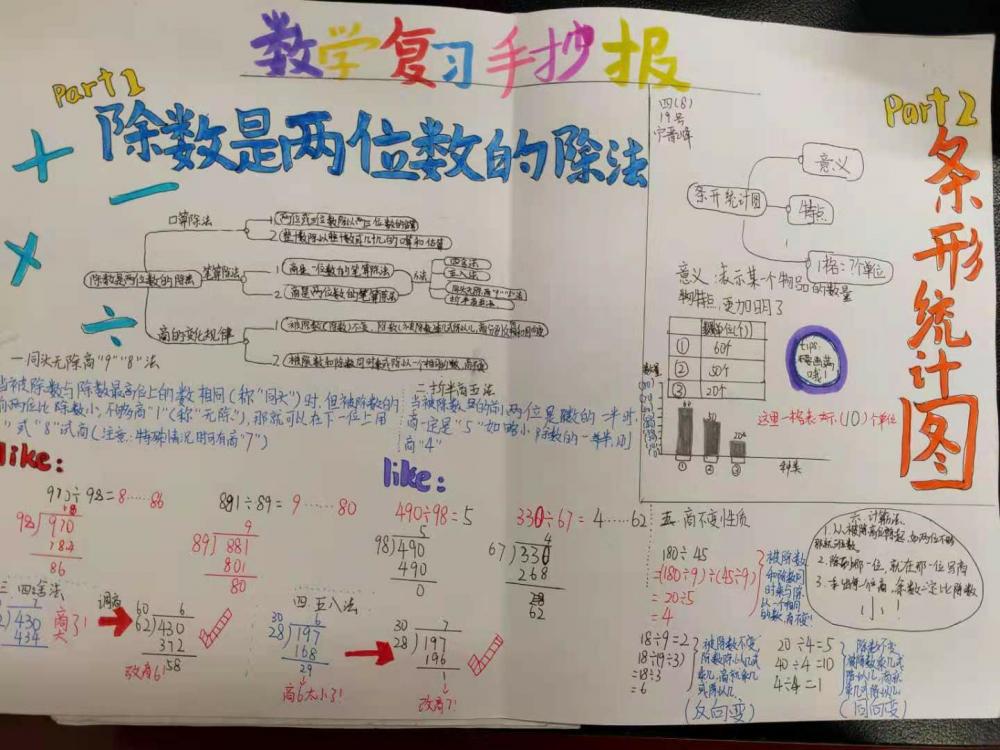 数学复习手抄报
Part1
除数是两位数的除法
口算除法
除数是两位数的除法
笔算除法
1 商是一位数的笔算除法
方法
四舍法
五入法
同头无除商"9""8"法
折半商五法
2 商是两位数的笔算除法
商的变化规律
一 同头无除商"9""8"法
当被除数与除数最高位上的数相同(称"同头")时,但被除数的
前两位比除数小,不够商"1"(称"无除"),那就可以在下一位上用
"8"试商(注意:特殊情况时可商"7")
二 折半商五法
当被除数的前两位是除数的一半时,
商一定是"5"如略小除数的一半,则
商"4"
like:
970÷98=8……86
98 970
784
86
881÷89=9……80
9
89 881
801
80
like:
490÷98=5
5
98 490
490
0
330÷67=4……62
4
67 330
268
62
三 四舍法
7
430
434
商大了!
调商
60 6
62 430
372
58
改商6!
四 五入法
30 6
28 197
168
29
商6太小了!
30 7
28 197
196
1
改商7!
Part2
条形统计图
四(8)
19号
条形统计图
意义
特点
1格=?个单位
意义:表示某个物品的数量
特点,更加明了
数量单位(个)
① 60个
② 50个
③ 20个
tips:
要画满
哦!
数量
20个
① ② ③
种类
这里一格表示(10)个单位
五 商不变性质
180÷45
=(180÷9)÷(45÷9)
=20÷5
=4
被除数
和除数同
时乘或除
以一个相同
的数,商不变!
18÷9=2
18÷(9÷3)
=18÷3
=6
被除数不变,
除数除以几或
乘几,商就乘几
或除以几
(反向变)
20÷4=5
40÷4=10
4÷4=1
除数不变,
被除数乘几或
除以几,商就
乘几或除以几
(同向变)
六 计算法
1.从被除数高位除起,如两位不够
2.除到哪一位,就在哪一位写商
3.每出现一个商,余数一定比除数
小!